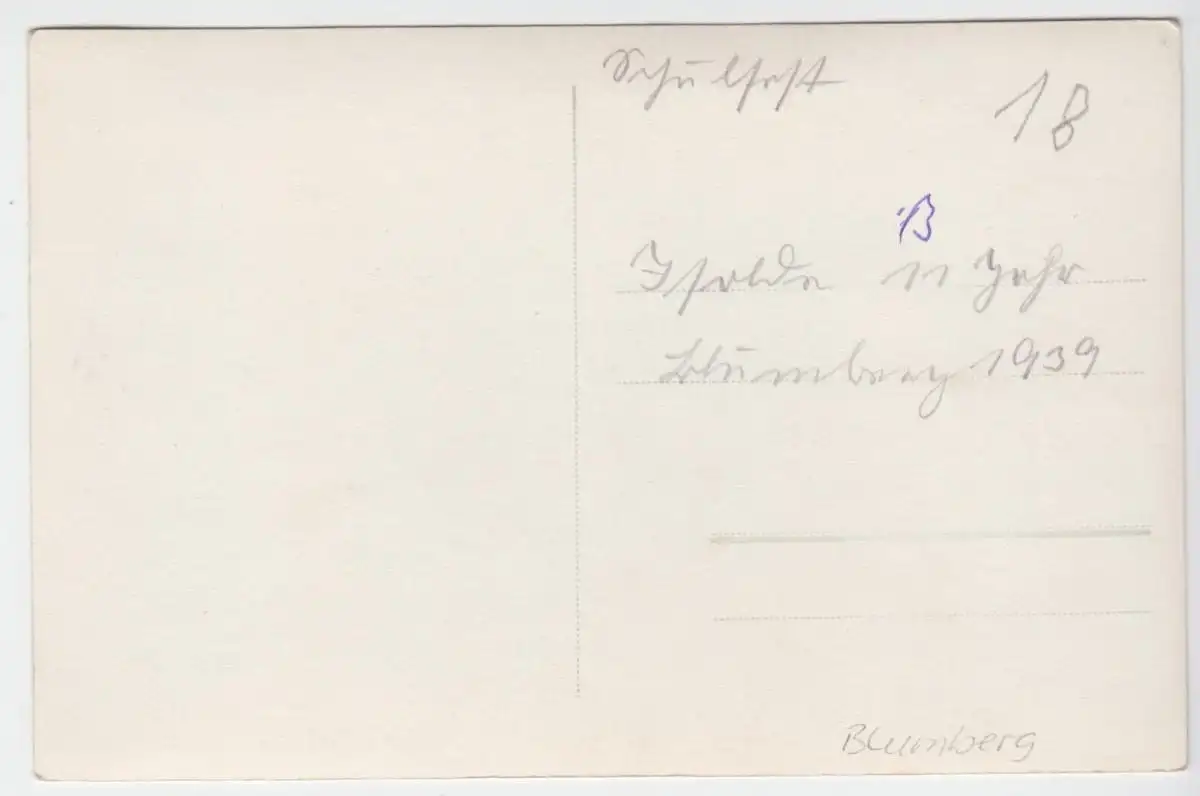 Schulfest
18
13
Isolde 11 Jahr
Blumberg 1939
Blumberg